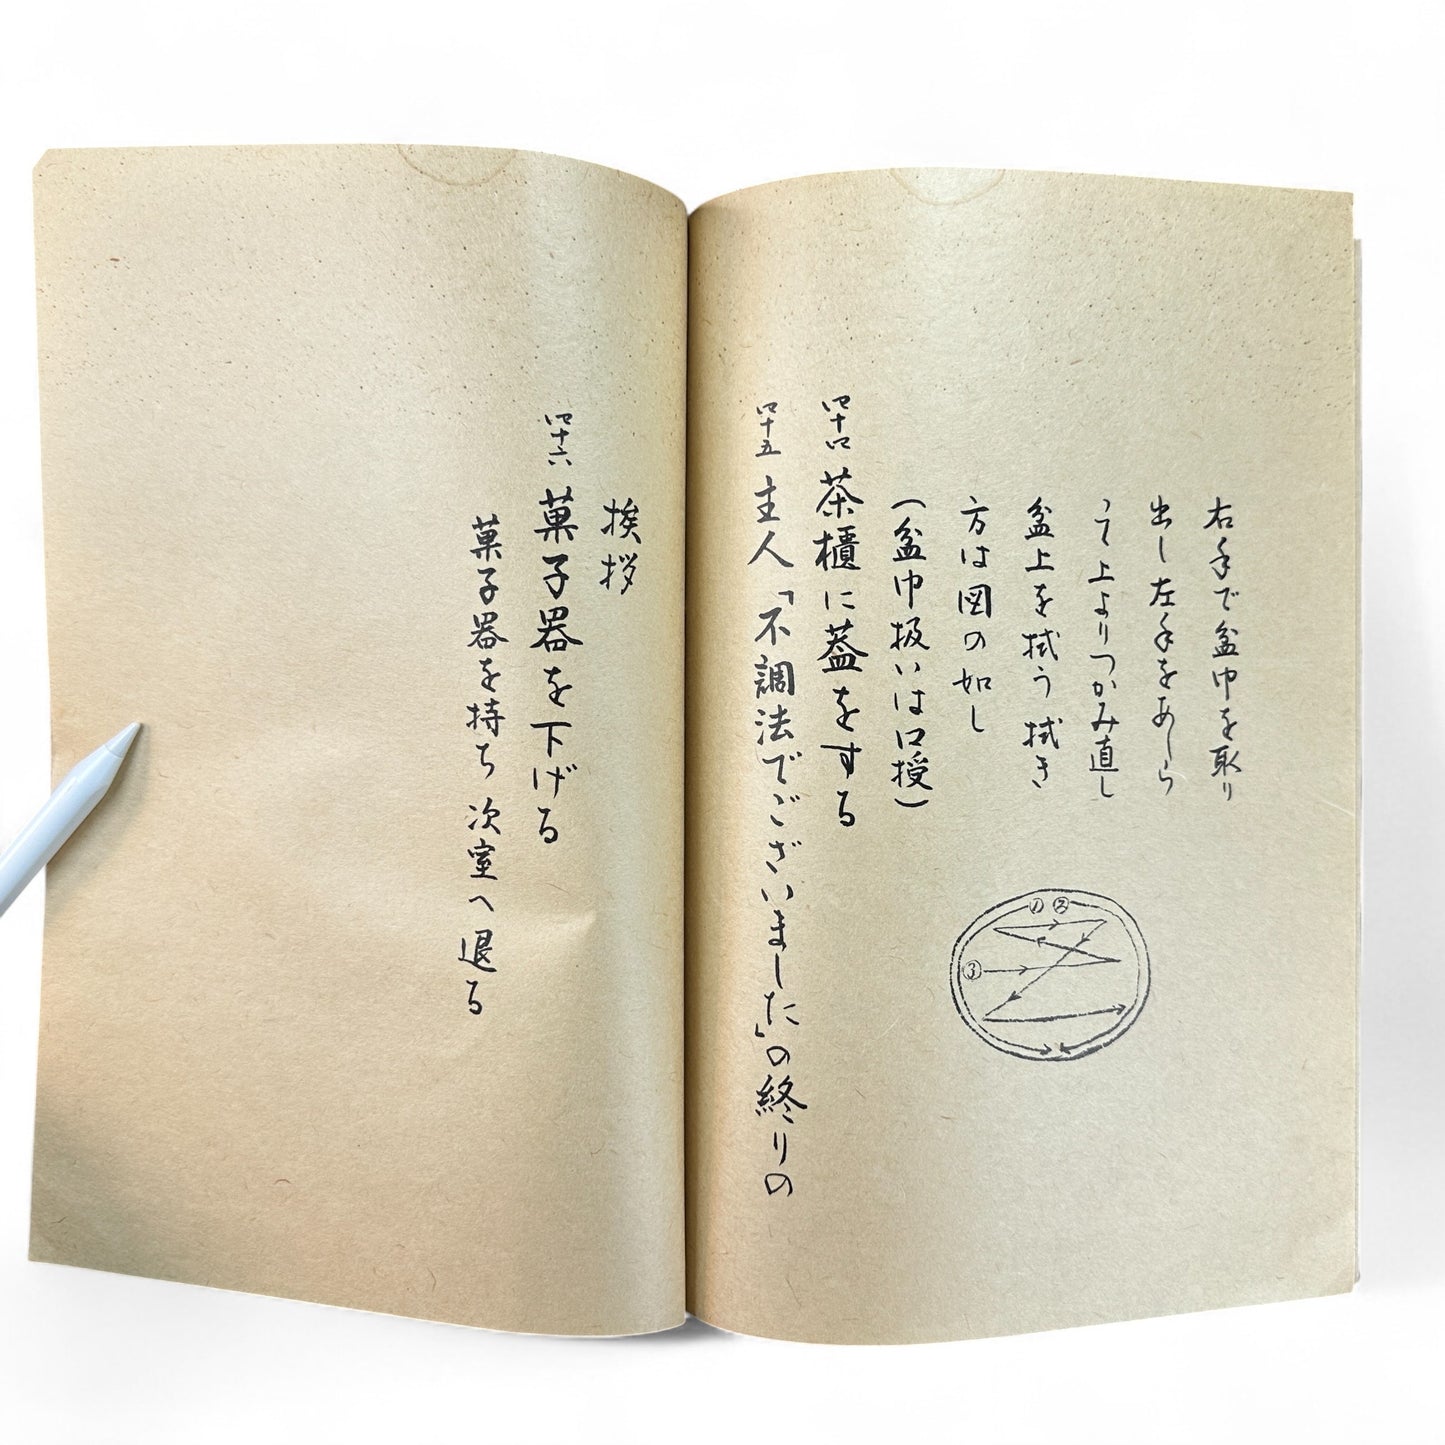 右手で盆巾を取り
出し左手をあしら
って上よりつかみ直し
盆上を拭う拭き
方は図の如し
(盆巾扱いは口授)
1 2
3
四十四 茶櫃に蓋をする
四十五 主人「不調法でございました」の終りの
挨拶
四十六 菓子器を下げる
菓子器を持ち次室へ退る